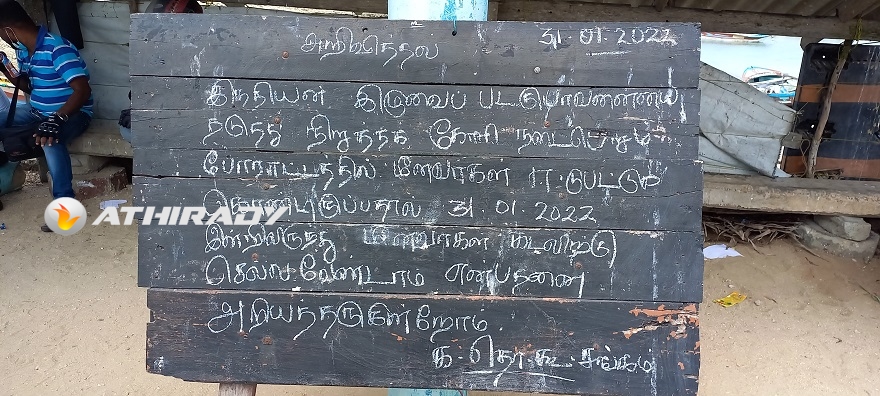 அறிவித்தல் 31.01.2022
இந்தியன் இழுவைப் படகு
தடுத்து நிறுத்தக் கோரி நடைபெறும்
போராட்டத்தில் மீனவர்கள் ஈடுபட்டுக்
கொண்டிருப்பதால் 31.01.2022
இன்றிலிருந்து மீனவர்கள் கடலிற்கு
செல்லவேண்டாம் என்பதனை
அறியத்தருகின்றோம்.
க.தொ.கூ.சங்கம்
ATHIRADY